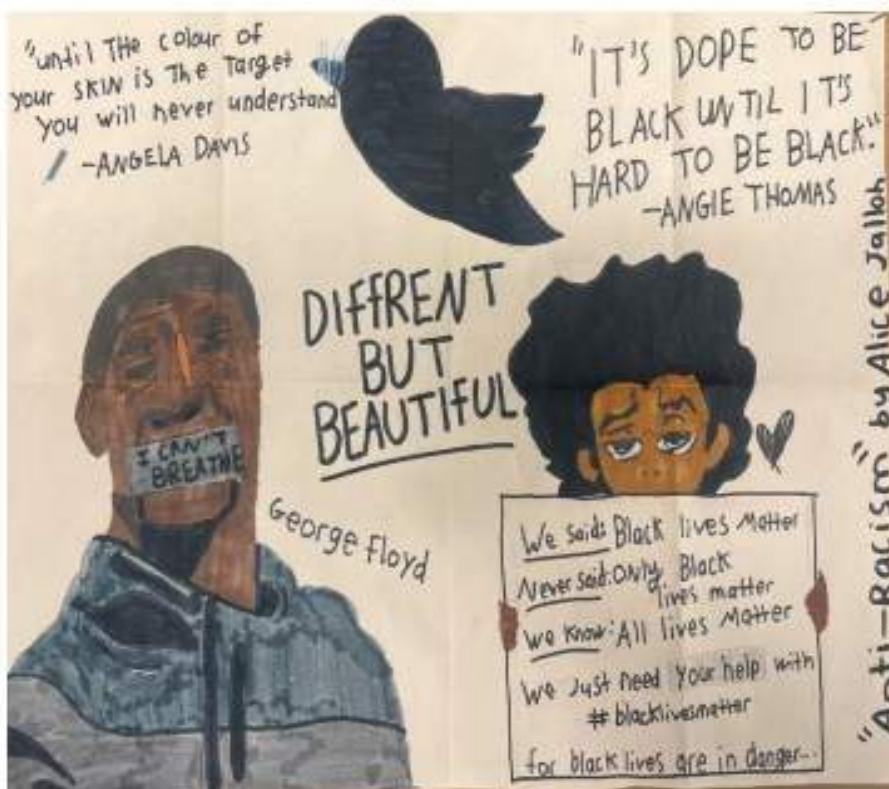 "until THE colour of
your SKIN is THE Target
you will never understand
-ANGELA DAVIS
"IT'S DOPE TO BE
BLACK UNTIL IT'S
HARD TO BE BLACK."
-ANGIE THOMAS
DIFFRENT
BUT
BEAUTIFUL
I CAN'T
BREATHE
George Floyd
We said: Black lives Matter
Never said: Only Black
lives matter
We know: All lives Matter
We Just need your help with
# blacklivesmatter
for black lives are in danger...
"Anti-Racism" by Alice Jalloh